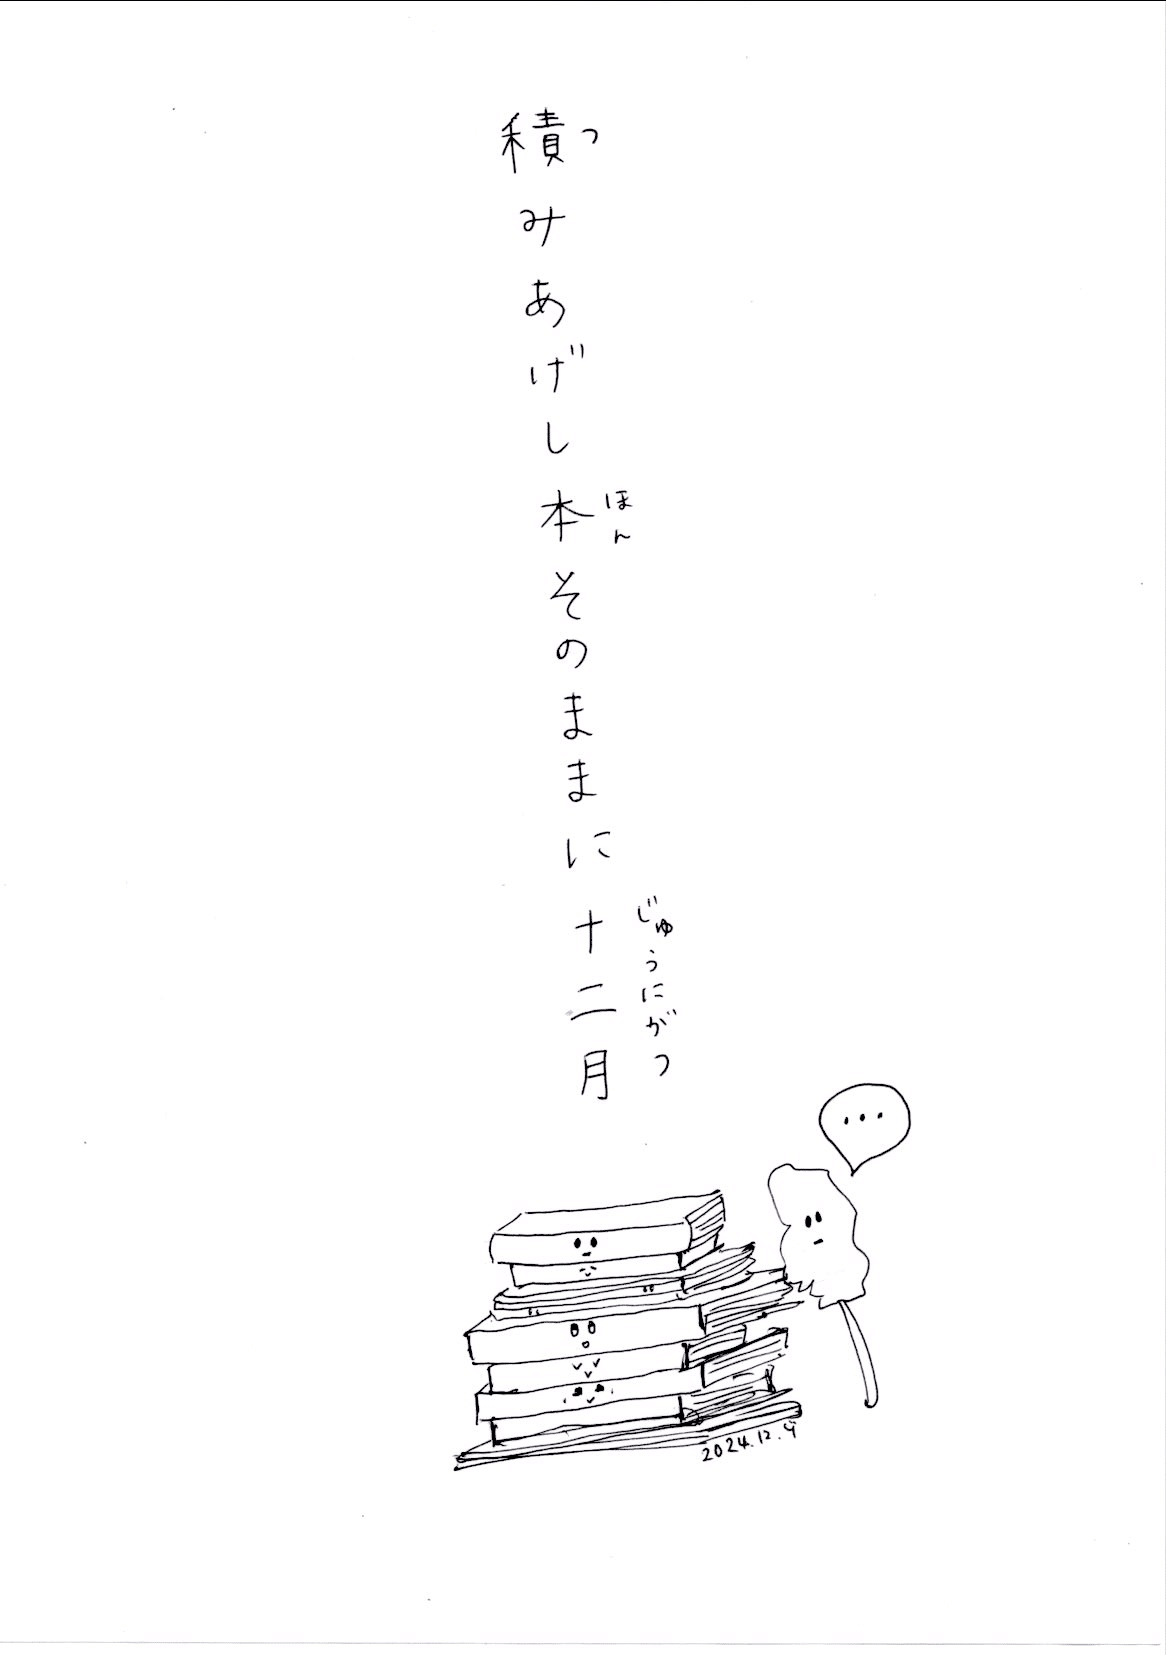 積みあげし本そのままに十二月
つ
ほん
じゅうにがつ
...
2024.12.4